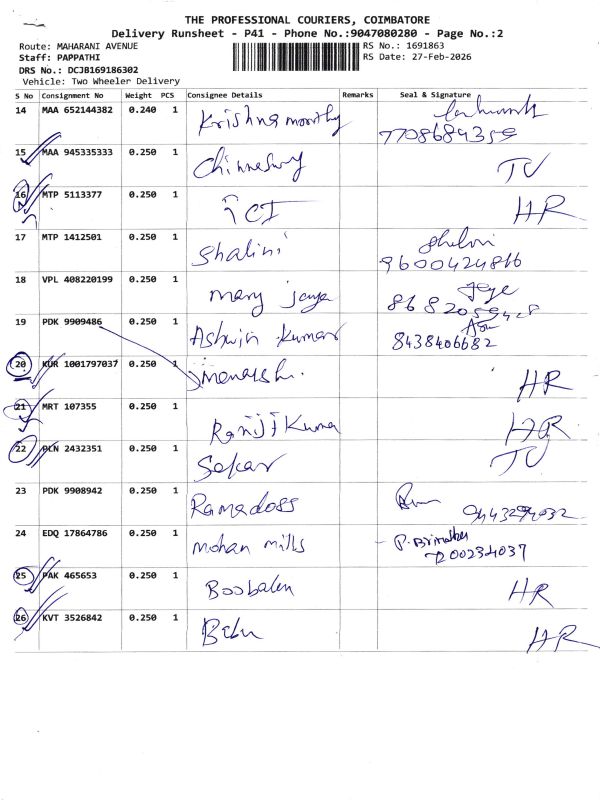 THE PROFESSIONAL COURIERS, COIMBATORE
Delivery Runsheet - P41 - Phone No.:9047080280 - Page No.:2
Route: MAHARANI AVENUE RS No.: 1691863
Staff: PAPPATHI RS Date: 27-Feb-2026
DRS No.: DCJB169186302
Vehicle: Two Wheeler Delivery
S No Consignment No Weight PCS Consignee Details Remarks Seal & Signature
14 MAA 652144382 0.240 1 Krishna moorthy
7708684359
15 MAA 945335333 0.250 1 Chinneswy TV
16 MTP 5113377 0.250 1 ICI HR
17 MTP 1412501 0.250 1 Shalini
9600424816
18 VPL 408220199 0.250 1 Mary jaya
19 PDK 9909486 0.250 1 Ashwin Kumar
8438406682
20 KUR 1001797037 0.250 1 HR
21 MRT 107355 0.250 1 Ranjit Kuma HR
22 PLN 2432351 0.250 1 Sekar TV
23 PDK 9908942 0.250 1 Ramadoss
9443294032
24 EDQ 17864786 0.250 1 Mohan mills
25 PAK 465653 0.250 1 Boobalen HR
26 KVT 3526842 0.250 1 Babu HR